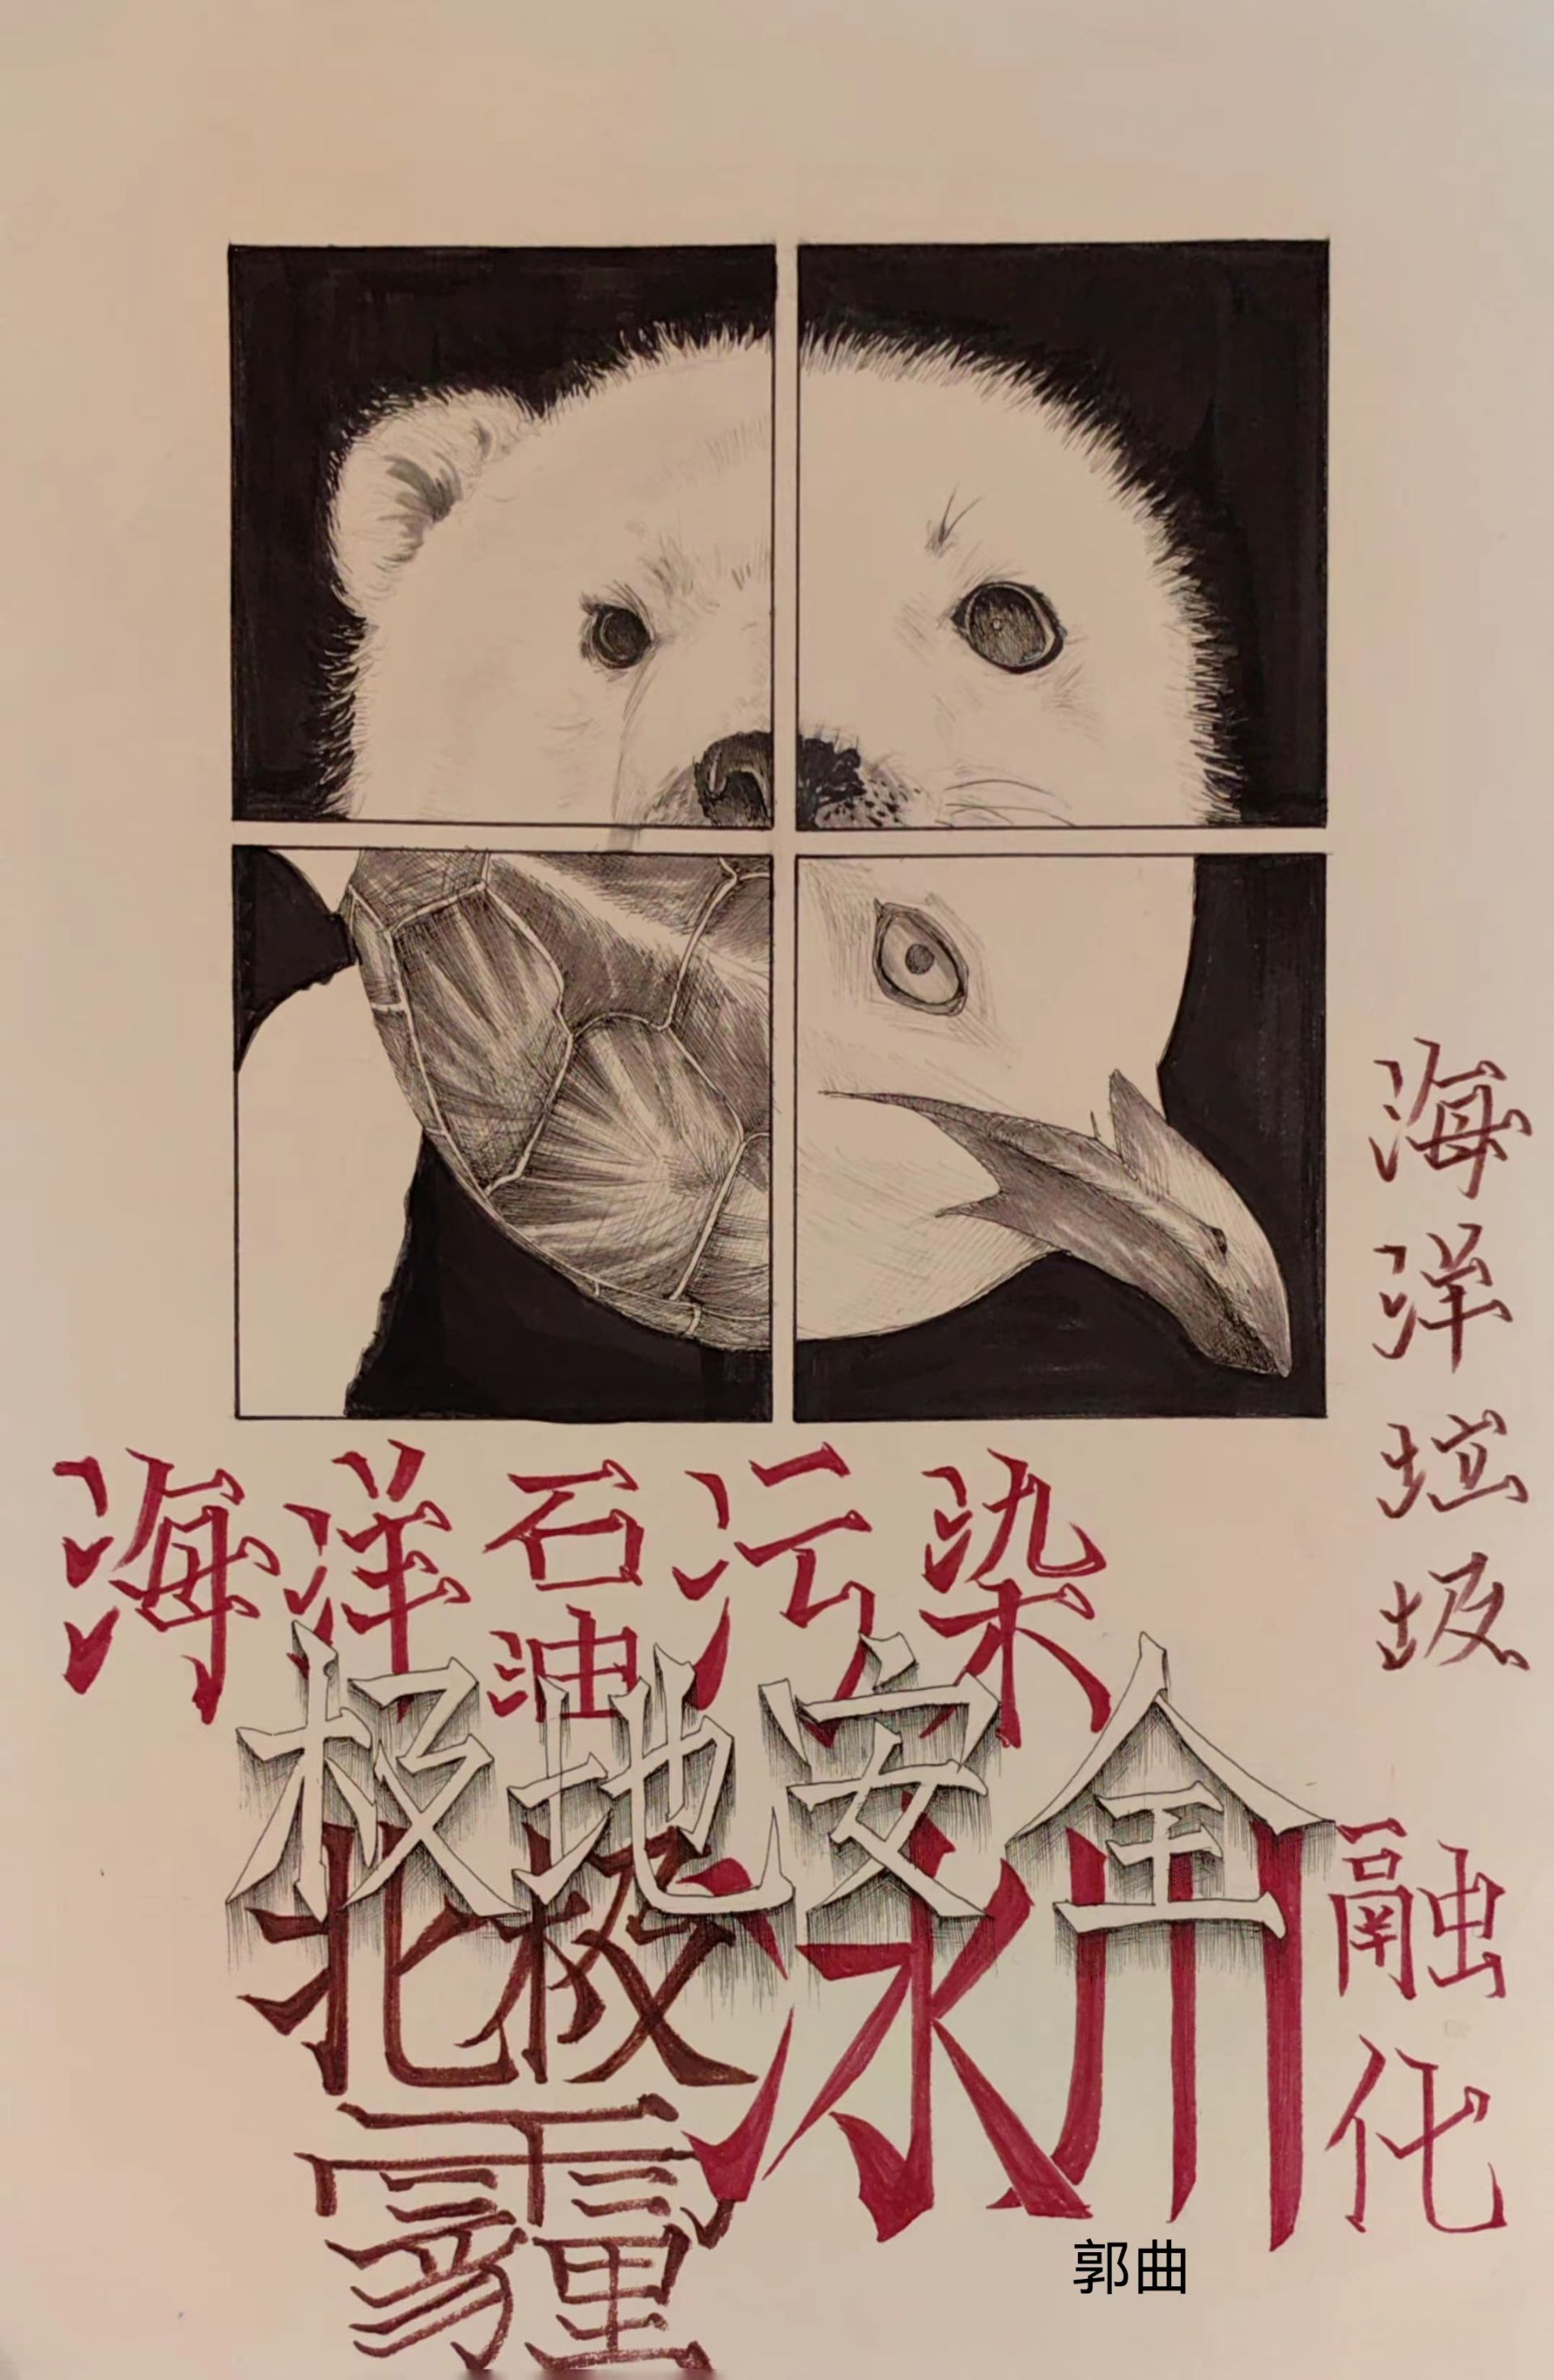 海洋垃圾
海洋石油污染
极地安全
北极霾
冰川
融化
郭曲